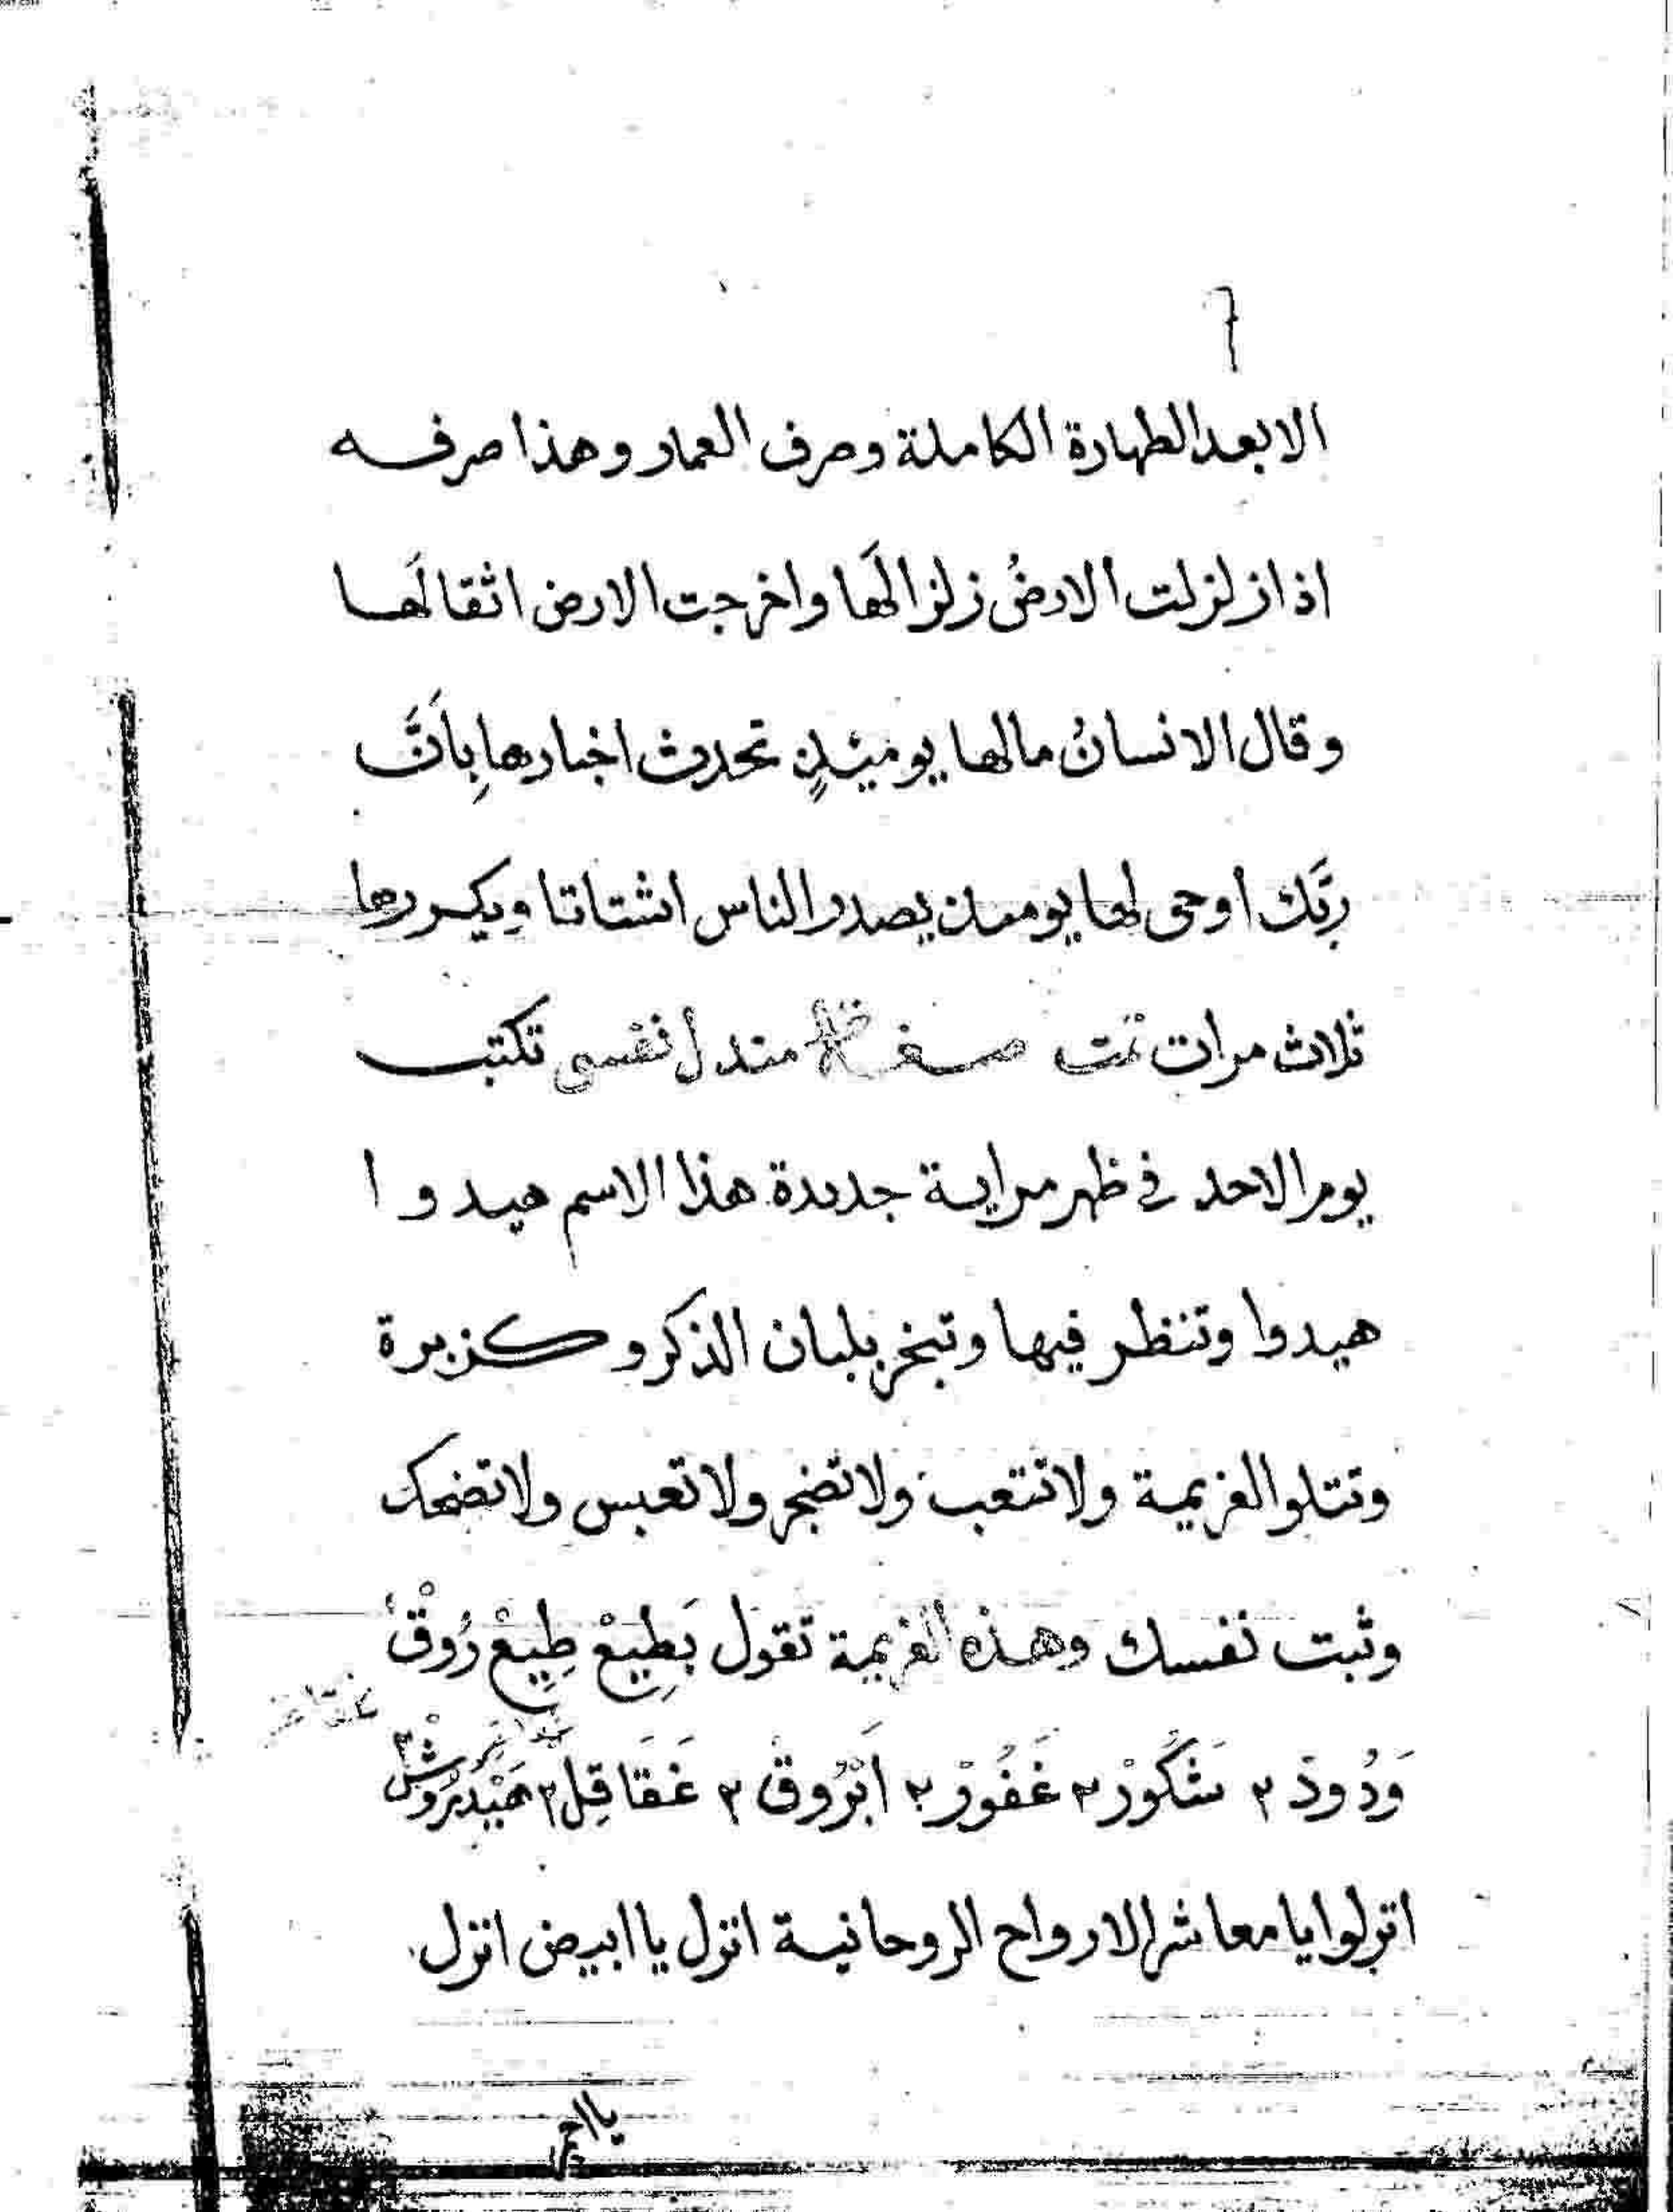 الا بعد الطهارة الكاملة وصرف العمار وهذا صرفه
اذا زلزلت الارضُ زلزالَها واخرجت الارض اثقالَها
وقال الانسانُ مالها يومئذٍ تحدث اخبارها بِاَنَّ
ربَّك اوحى لها يومىذ يصدر الناس اشتاتا ويكررها
ثلاث مرات تمت صفة مندل نفسى تكتب
يوم الاحد فى ظهر مراية جديدة هذا الاسم هيدوا
هيدوا وتنظر فيها وتبخر بلبان الذكر وكزبرة
وتتلوا العزيمة ولا تتعب ولا تضجر ولا تعبس ولا تضحك
وثبت نفسك وهذه العزيمة تقول بَطِيعْ طِيعْ رُوقْ
وَدُودْ ٢ شَكُورْ ٢ غَفُورْ ٢ اَبْرُوقْ ٢ غَقَاقِل ٢ هَيْدَرُوشْ ٢
انزلوا يا معاشر الارواح الروحانية انزل يا ابيض انزل